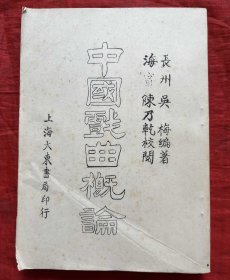 長州 吳 梅編著
海寧 陳乃乾校閱
中國戲曲概論
上海大東書局印行